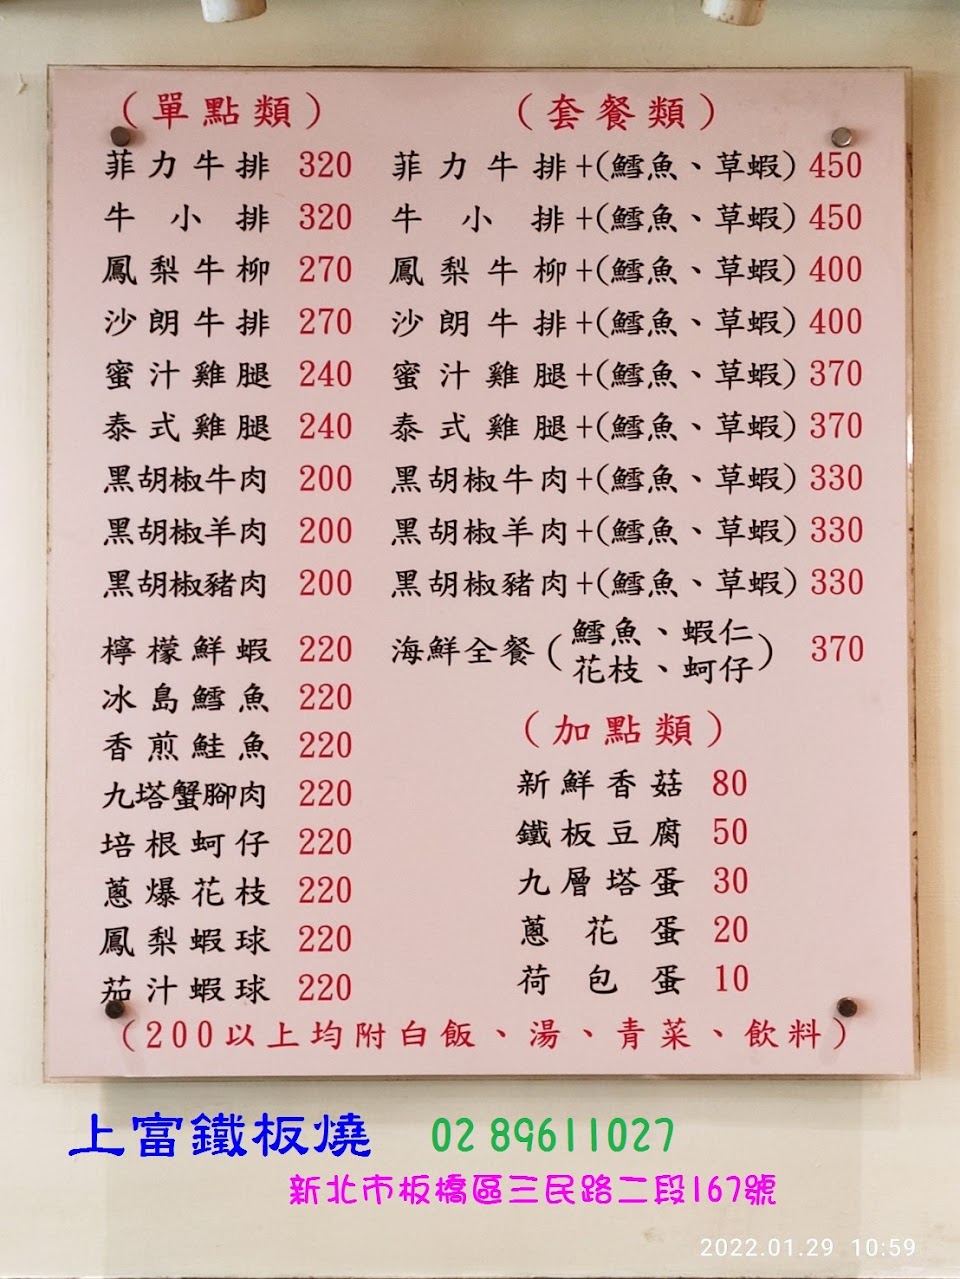 （單點類）
菲力牛排 320
牛小排 320
鳳梨牛柳 270
沙朗牛排 270
蜜汁雞腿 240
泰式雞腿 240
黑胡椒牛肉 200
黑胡椒羊肉 200
黑胡椒豬肉 200
檸檬鮮蝦 220
冰島鱈魚 220
香煎鮭魚 220
九塔蟹腳肉 220
培根蚵仔 220
蔥爆花枝 220
鳳梨蝦球 220
茄汁蝦球 220
（套餐類）
菲力牛排+(鱈魚、草蝦) 450
牛小排+(鱈魚、草蝦) 450
鳳梨牛柳+(鱈魚、草蝦) 400
沙朗牛排+(鱈魚、草蝦) 400
蜜汁雞腿+(鱈魚、草蝦) 370
泰式雞腿+(鱈魚、草蝦) 370
黑胡椒牛肉+(鱈魚、草蝦) 330
黑胡椒羊肉+(鱈魚、草蝦) 330
黑胡椒豬肉+(鱈魚、草蝦) 330
海鮮全餐(鱈魚、蝦仁
花枝、蚵仔) 370
（加點類）
新鮮香菇 80
鐵板豆腐 50
九層塔蛋 30
蔥花蛋 20
荷包蛋 10
（200以上均附白飯、湯、青菜、飲料）
上富鐵板燒 02 89611027
新北市板橋區三民路二段167號
2022.01.29 10:59